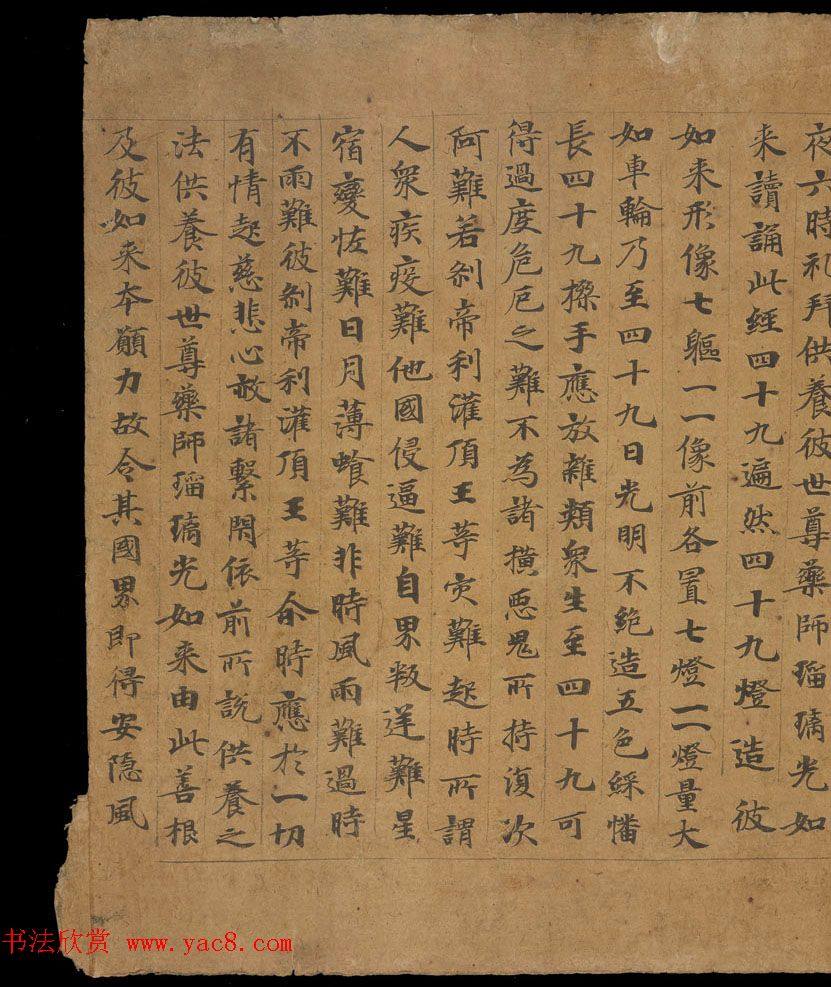 夜六時礼拜供養彼世尊藥師瑠璃光如
来讀誦此經四十九遍然四十九燈造彼
如来形像七軀一一像前各置七燈一一燈量大
如車輪乃至四十九日光明不絶造五色綵幡
長四十九搩手應放雜類衆生至四十九可
得過度危厄之難不為諸横惡鬼所持復次
阿難若刹帝利灌頂王等灾難起時所謂
人衆疾疫難他國侵逼難自界叛逆難星
宿變恠難日月薄蝕難非時風雨難過時
不雨難彼刹帝利灌頂王等尒時應於一切
有情起慈悲心赦諸繫閇依前所說供養之
法供養彼世尊藥師瑠璃光如来由此善根
及彼如来本願力故令其國界即得安隱風
书法欣赏 www.yac8.com